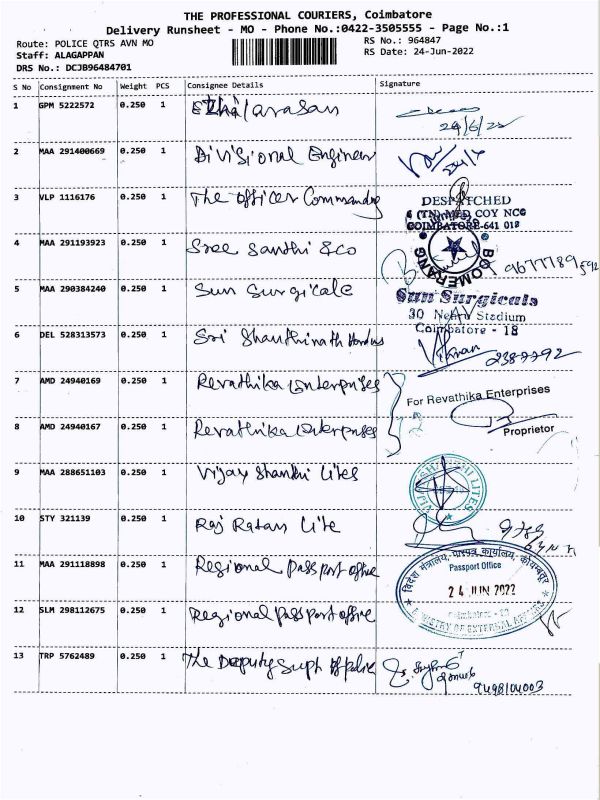 THE PROFESSIONAL COURIERS, Coimbatore
Delivery Runsheet - MO - Phone No.:0422-3505555 - Page No.:1
Route: POLICE QTRS AVN MO
RS No.: 964847
Staff: ALAGAPPAN
RS Date: 24-Jun-2022
DRS No.: DCJB96484701
S No Consignment No Weight PCS Consignee Details Signature
1 GPM 5222572 0.250 1 Ezhilarasan
24/6/22
2 MAA 291400669 0.250 1 Divisional Engineer
3 VLP 1116176 0.250 1 The officer Commanding
DESPATCHED
6 (TN) MED COY NCC
COIMBATORE-641 018
4 MAA 291193923 0.250 1 Sree Santhi & co
BOOMERANG
9677789592
5 MAA 290384240 0.250 1 Sun Surgicals
Sun Surgicals
30 Nehru Stadium
Coimbatore - 18
6 DEL 528313573 0.250 1 Sri Shanthinath
2387792
7 AMD 24940169 0.250 1 Revathika Enterprises
For Revathika Enterprises
8 AMD 24940167 0.250 1 Revathika Enterprises
Proprietor
9 MAA 288651103 0.250 1 Vijay Shanthi Lites
VIJAY SHANTHI LITES
10 STY 321139 0.250 1 Raj Ratan Lite
11 MAA 291118898 0.250 1 Regional Passport office
विदेश मंत्रालय, पारपत्र कार्यालय, कोयम्बत्तूर
Passport Office
24 JUN 2022
Coimbatore
MINISTRY OF EXTERNAL AFFAIRS
12 SLM 298112675 0.250 1 Regional Passport office
13 TRP 5762489 0.250 1 The Deputy Supt of Police
9498104003